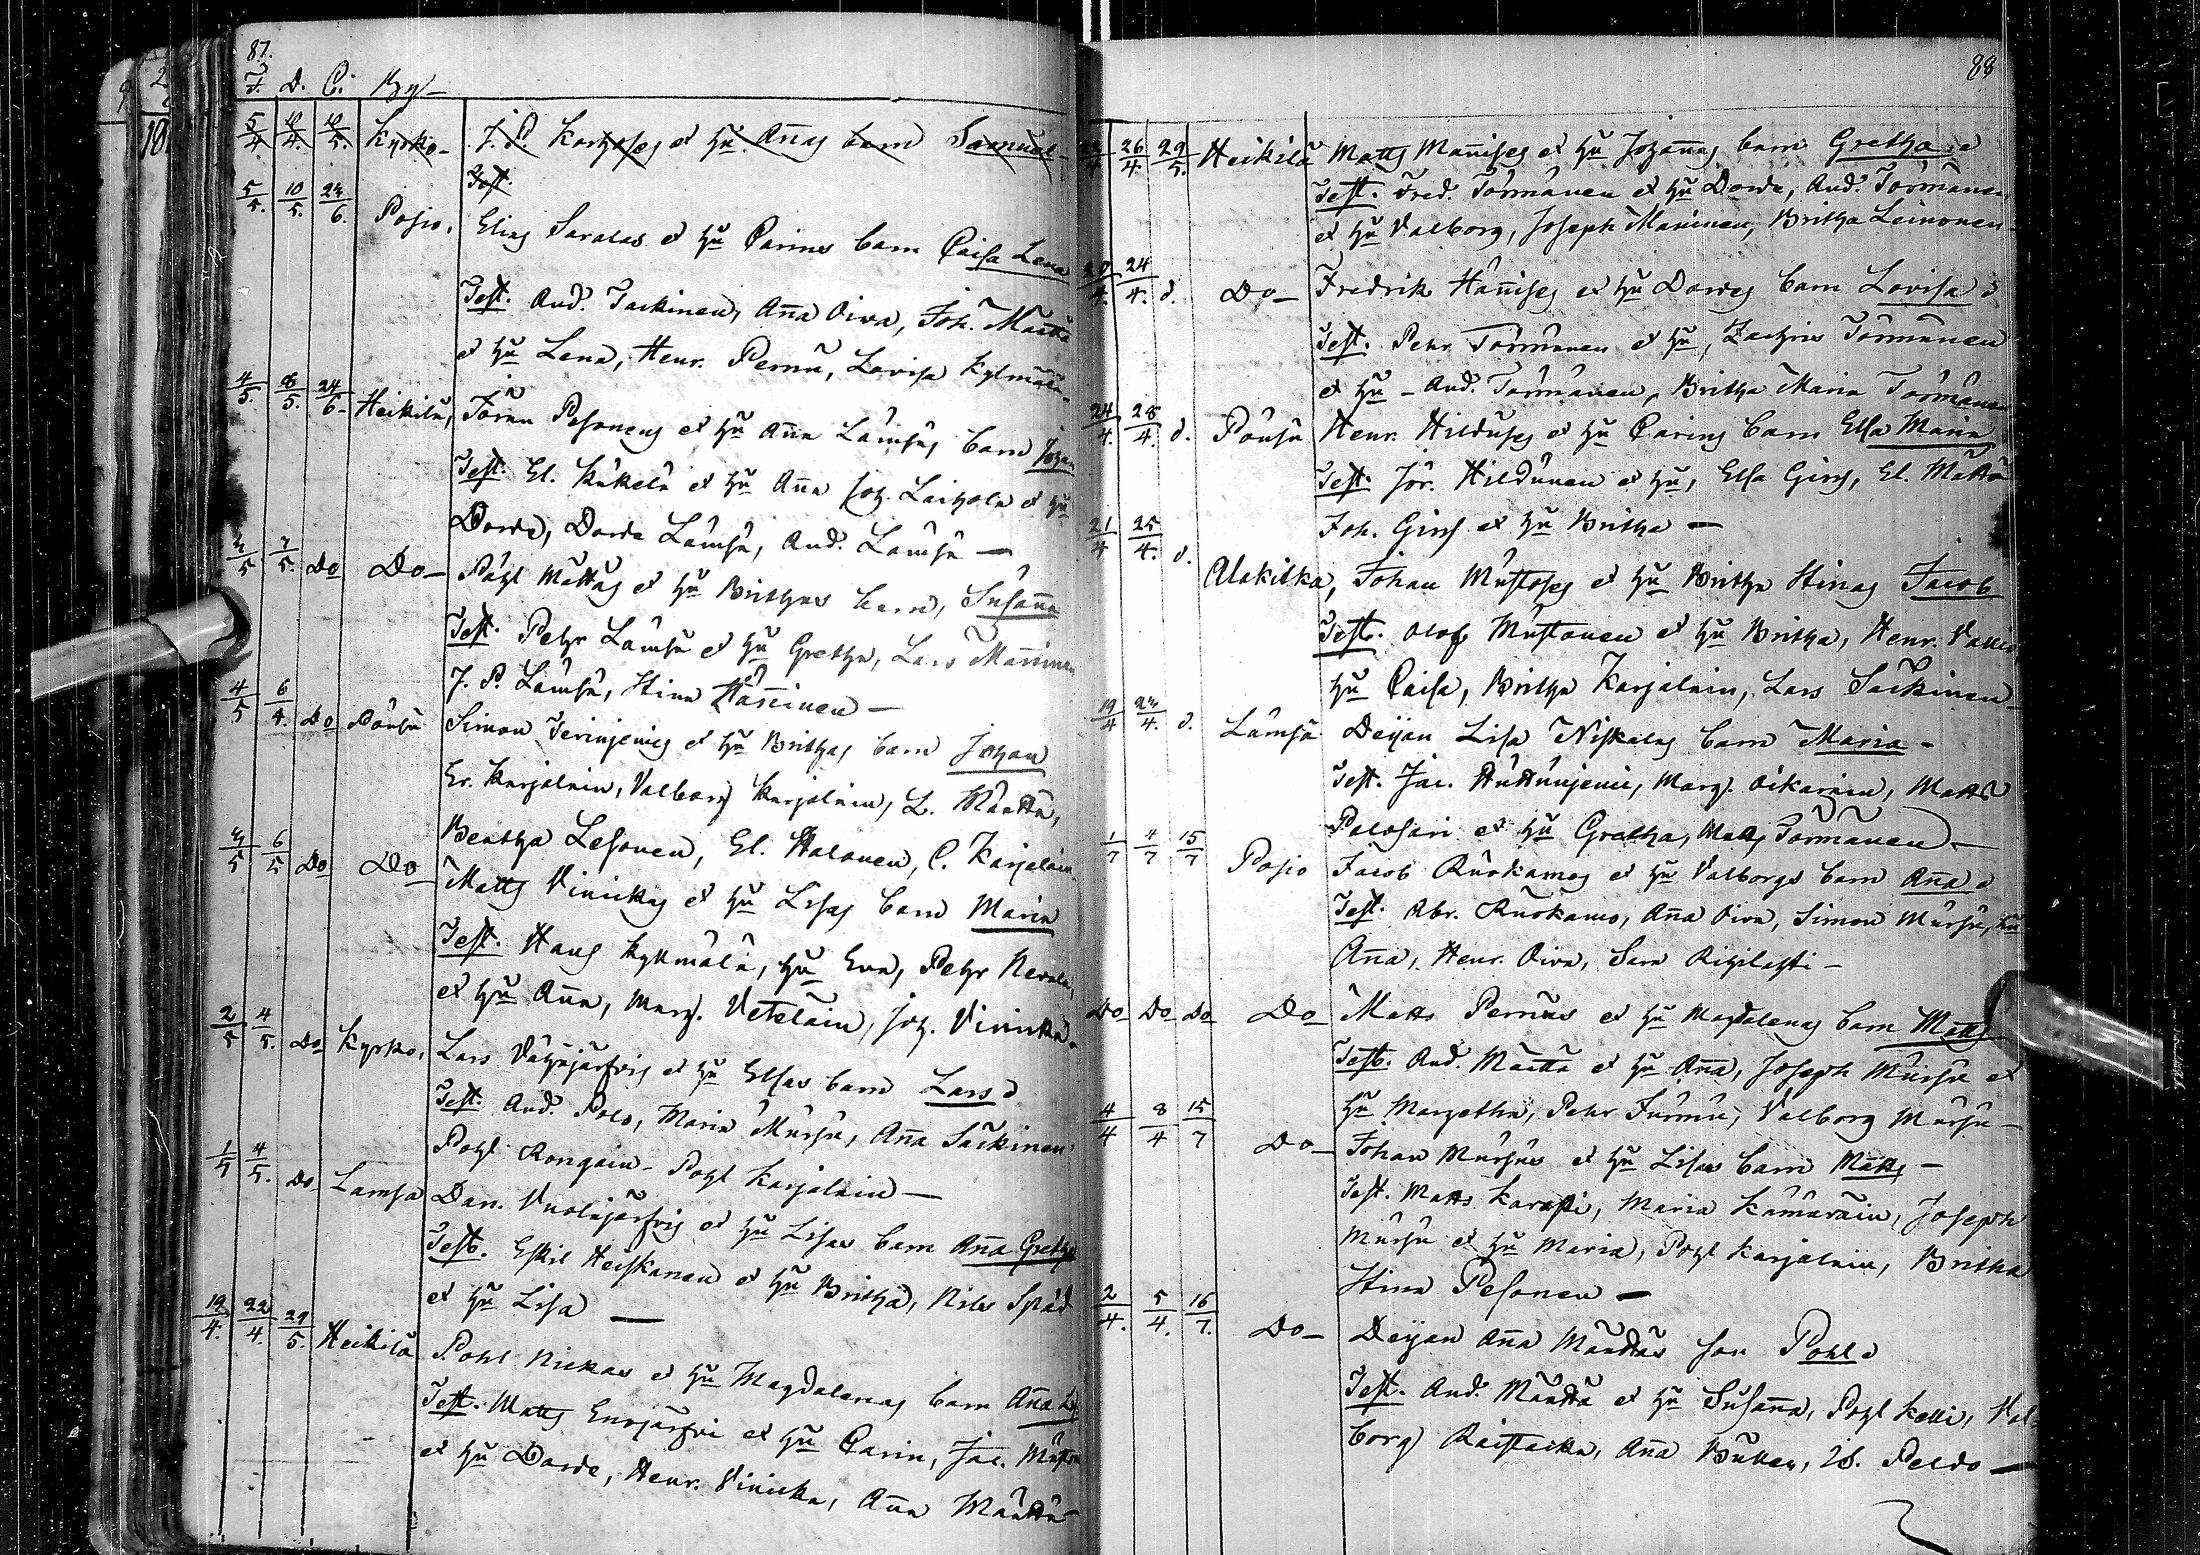 87.
F. D. C. By
5/4 10/4. 10/5. Kyrko- J. P. Korhoses et Hu Annas barn Samuel-
Test.
5/5. 10/5. 24/6. Posio. Elias Saralas et Hu Carins barn Caisa Lena
Test. And. Tackinen, Anna Oiva, Joh. Määttä
et Hu Lena, Henr. Pernu, Lovisa Kylmäin.
4/5. 8/5. 24/6- Heikilä, Jöran Pesonens et Hu Anna Lämsäs barn Johan
Test. El. Käkelä et Hu Anna Joh. Laihola et Hu
Dorde, Dorde Lämsä, And. Lämsä —
5 7/5. Do Do- Påhl Mättäs et Hu Brithas barn, Susanna
Test. Pehr Lämsä et Hu Gretha, Lars Manninen
J. P. Lämsä, Stina Hänninen —
4/5 6/5. Do Pousu Simon Terinjemis et Hu Brithas barn Johan
Er. Karjalain, Valborg Karjalain, L. Määttä,
Bertha Lesonen, El. Halonen, C. Karjalain
5 6/5 Do Do Matts Vinickas et Hu Lisas barn Maria
Test. Hans Kyllmälä, Hu Eva, Pehr Nevala,
et Hu Anna, Marg. Vetelain, Joh. Vinicka.
2/5 4/5. Do Kyrko. Lars Vähäjärfvis et Hu Elsas barn Lars
Test. And. Polo, Maria Mursu, Anna Säckinen
Pohl Rongain- Pohl Karjalain —
1/5 4/5. Do Lamsa Dan. Vuolajärfvis et Hu Lisas barn Anna Gretha
Test. Eskil Heiskanen et Hu Britha, Nils Späd
et Hu Lisa —
19/4. 22/4. 29/5. Heikilä Pohl Nickas et Hu Magdalenas barn Anna
Test. Matts Enojärfvi et Hu Carin, Jac.
et Hu Dorde, Henr. Vinicka, Anna Määttä
88
22/4 26/4. 29/5. Heikilä Matts Mannises et Hu Johannas barn Gretha
Test. Fred. Törmänen et Hu Dorde, And. Törmänen
et Hu Valborg, Joseph Maninen, Britha Leinonen-
20/4. 24/4. d. Do- Fredrik Hännises et Hu Dordes barn Lovisa
Test. Pehr Törmänen et Hu, Zachris Törmänen
et Hu - And. Törmänen, Britha Maria Törmänen
24/4. 28/4. d. Pousu Henr. Hilduses et Hu Carins barn Elsa Maria
Test. Jör. Hildunen et Hu, Elsa Girs, El. Mättä
Joh. Girs et Hu Britha —
21/4 25/4. d. Alakitka, Johan Mustoses et Hu Britha Stinas Jacob
Test. Olof Mustonen et Hu Britha, Henr.
Hu Caisa, Britha Karjalain, Lars Säckinen-
19/4 23/4. d. Lämsä Deijan Lisa Niskalas barn Maria -
Test. Jac. Huttunjemi, Marg. Oikarain, Matts
Polosari et Hu Gretha, Matts Törmänen —
1/7 4/7 15/7 Posio Jacob Ruokamos et Hu Valborgs barn Anna
Test. Abr. Ruokamo, Anna Oiva, Simon Mursu, Hu
Anna, Henr. Oiva, Sara Riihilahti -
Do Do Do Do Matts Pernus et Hu Magdalenas barn Matts
Test. And. Määttä et Hu Anna, Joseph Mursu et
Hu Margetha, Pehr Jurmu, Valborg Mursu-
4/4 8/4 15/7 Do- Johan Mursus et Hu Lisas barn Matts -
Test. Matts Karasti, Maria Kämäräin, Joseph
Mursu et Hu Maria, Pohl Karjalain, Britha
Stina Pesonen —
2/4. 5/4. 16/7. Do- Deijan Anna Määttäs son Pohl
Test. And. Määttä et Hu Susanna, Pohl Kelli, Val-
borg Raistacka, Anna Bullen, Is. Peldo —